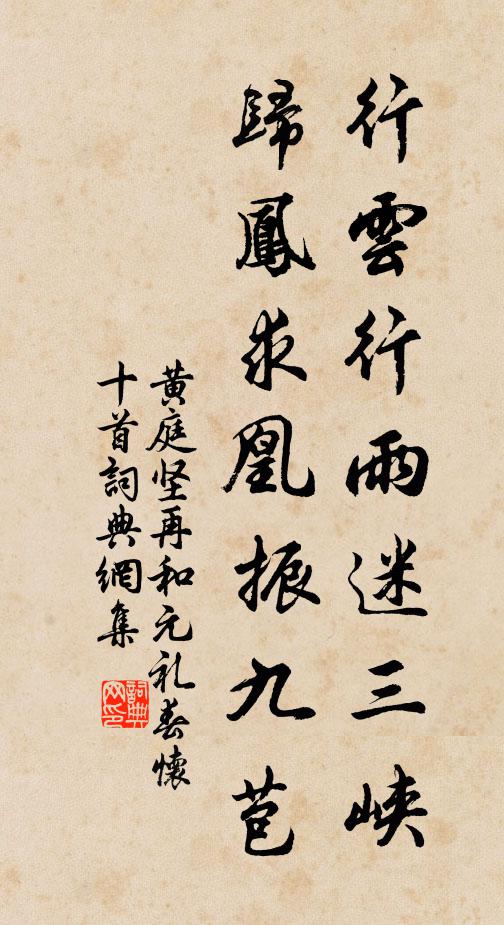 行雲行雨迷三峽
歸鳳求凰振九苞
黃庭坚再和元礼春懷
十首詞典網集
詞典
网印